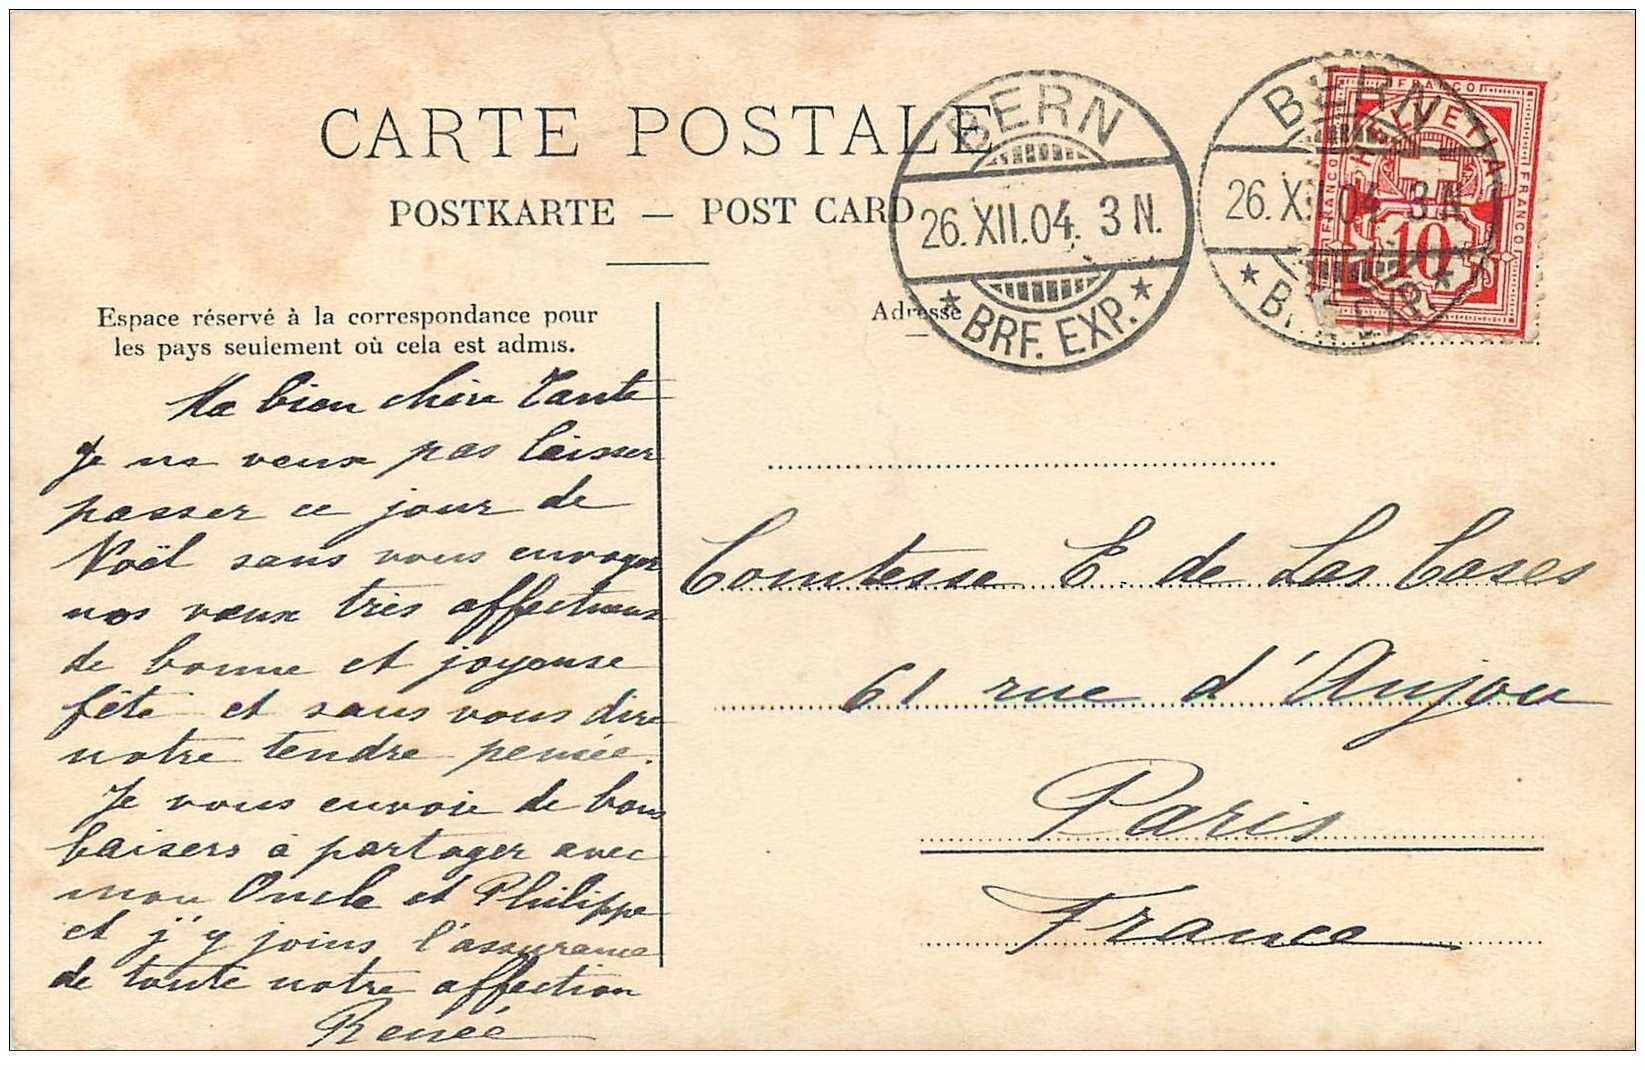 CARTE POSTALE
POSTKARTE — POST CARD
BERN
26.XII.04. 3 N.
* BRF. EXP. *
BERN
26.XII.04 3 N
* BRF. EXP. *
FRANCO
HELVETIA
FRANCO
FRANCO
10
Espace réservé à la correspondance pour
les pays seulement où cela est admis.
Adresse
Ma bien chère Tante
Je ne veux pas laisser
passer ce jour de
Noël sans vous envoyer
nos vœux très affectueux
de bonne et joyeuse
fête et sans vous dire
notre tendre pensée.
Je vous envoie de bons
baisers à partager avec
mon Oncle et Philippe
et j'y joins l'assurance
de toute notre affection
Renée
Comtesse E. de Las Cases
61 rue d'Anjou
Paris
France